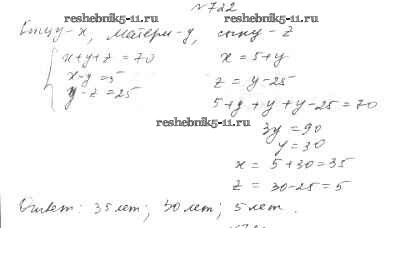 №722
reshebnik5-11.ru reshebnik5-11.ru
Отцу - x, матери - y, сыну - z
x+y+z = 70
x-y = 5
y-z = 25
x = 5+y
z = y-25
5+y+y+y-25 = 70
reshebnik5-11.ru
3y = 90
y = 30
x = 5+30 = 35
z = 30-25 = 5
Ответ: 35 лет; 30 лет; 5 лет.